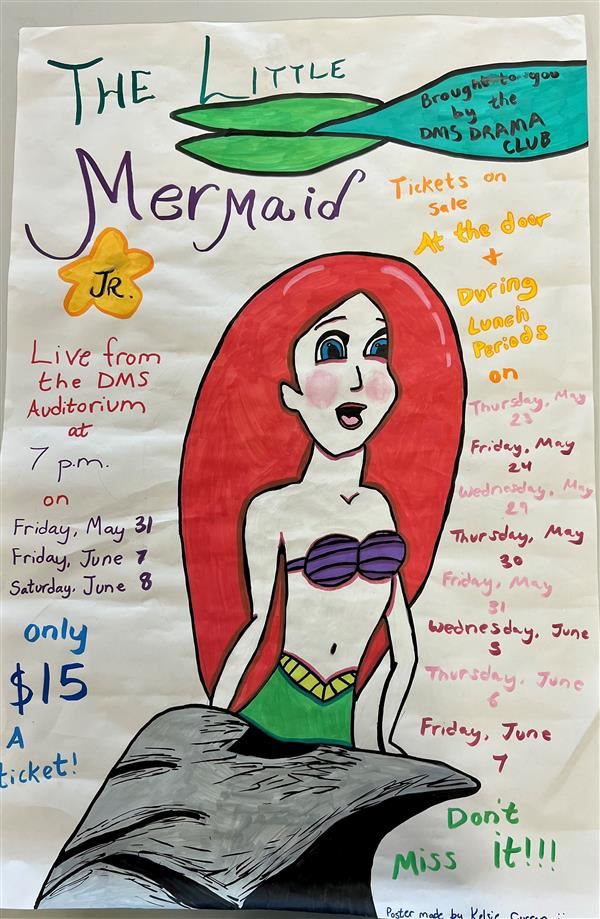 The Little
Mermaid
Jr.
Brought to you
by the
DMS DRAMA
CLUB
Live from
the DMS
Auditorium
at
7 p.m.
on
Friday, May 31
Friday, June 7
Saturday, June 8
only
$15
A
ticket!
Tickets on
sale
At the door
+
During
Lunch
Periods
on
Thursday, May
23
Friday, May
24
Wednesday, May
29
Thursday, May
30
Friday, May
31
Wednesday, June
5
Thursday, June
6
Friday, June
7
Don't
Miss it!!!
Poster made by Kelsie